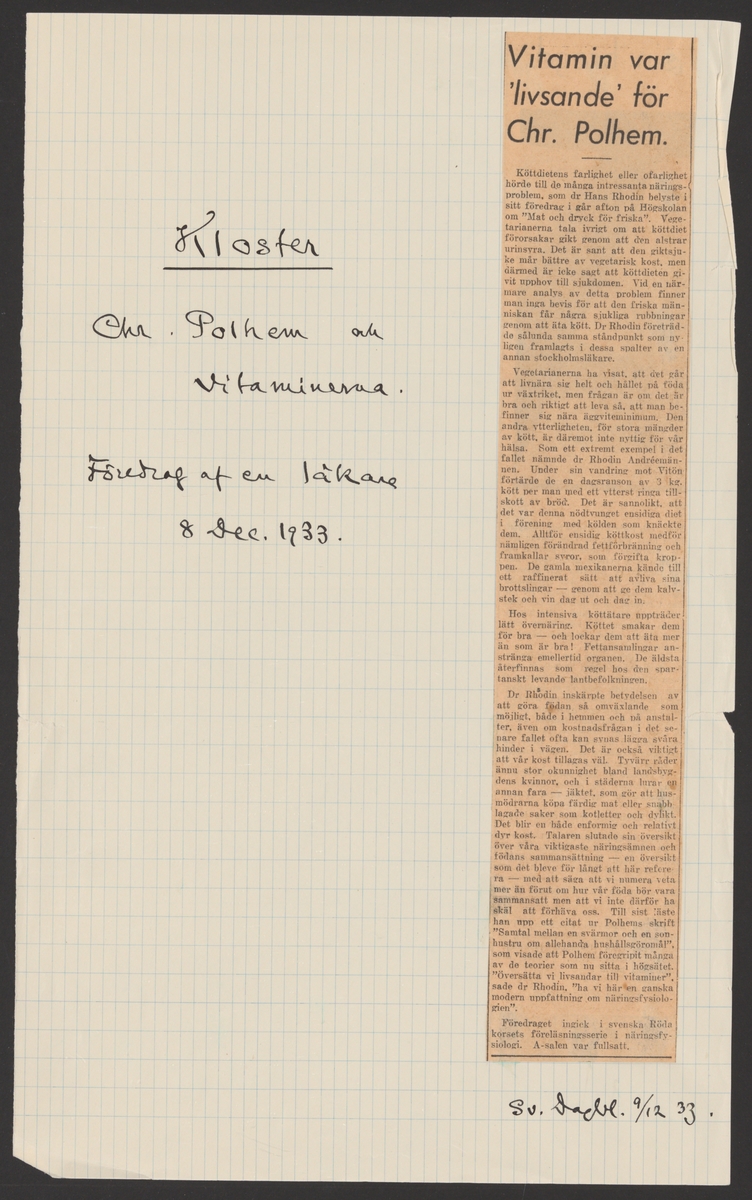 Kloster
Chr. Polhem och
Vitaminerna.
Föredrag af en läkare
8 Dec. 1933.
Vitamin var
'livsande' för
Chr. Polhem.
Köttdietens farlighet eller ofarlighet
hörde till de många intressanta närings-
problem, som dr Hans Rhodin belyste i
sitt föredrag i går afton på Högskolan
om "Mat och dryck för friska". Vege-
tarianerna tala ivrigt om att köttdiet
förorsakar gikt genom att den alstrar
urinsyra. Det är sant att den giktsju-
ke mår bättre av vegetarisk kost, men
därmed är icke sagt att köttdieten gi-
vit upphov till sjukdomen. Vid en när-
mare analys av detta problem finner
man inga bevis för att den friska män-
niskan får några sjukliga rubbningar
genom att äta kött. Dr Rhodin företräd-
de sålunda samma ståndpunkt som ny-
ligen framlagts i dessa spalter av en
annan stockholmsläkare.
Vegetarianerna ha visat, att det går
att livnära sig helt och hållet på föda
ur växtriket, men frågan är om det är
bra och riktigt att leva så, att man be-
finner sig nära äggviteminimum. Den
andra ytterligheten, för stora mängder
av kött, är däremot inte nyttig för vår
hälsa. Som ett extremt exempel i det
fallet nämnde dr Rhodin Andréemän-
nen. Under sin vandring mot Vitön
förtärde de en dagsranson av 3 kg.
kött per man med ett ytterst ringa till-
skott av bröd. Det är sannolikt, att
det var denna nödtvunget ensidiga diet
i förening med kölden som knäckte
dem. Alltför ensidig köttkost medför
nämligen förändrad fettförbränning och
framkallar syror, som förgifta krop-
pen. De gamla mexikanerna kände till
ett raffinerat sätt att avliva sina
brottslingar — genom att ge dem kalv-
stek och vin dag ut och dag in.
Hos intensiva köttätare uppträder
lätt övernäring. Köttet smakar dem
för bra — och lockar dem att äta mer
än som är bra! Fettansamlingar an-
stränga emellertid organen. De äldsta
återfinnas som regel hos den spar-
tanskt levande lantbefolkningen.
Dr Rhodin inskärpte betydelsen av
att göra födan så omväxlande som
möjligt, både i hemmen och på anstal-
ter, även om kostnadsfrågan i det se-
nare fallet ofta kan synas lägga svåra
hinder i vägen. Det är också viktigt
att vår kost tillagas väl. Tyvärr råder
ännu stor okunnighet bland landsbyg-
dens kvinnor, och i städerna lurar en
annan fara — jäktet, som gör att hus-
mödrarna köpa färdig mat eller snabb-
lagade saker som kotletter och dylikt.
Det blir en både enformig och relativt
dyr kost. Talaren slutade sin översikt
över våra viktigaste näringsämnen och
födans sammansättning — en översikt
som det bleve för långt att här refere-
ra — med att säga att vi numera veta
mer än förut om hur vår föda bör vara
sammansatt men att vi inte därför ha
skäl att förhäva oss. Till sist läste
han upp ett citat ur Polhems skrift
"Samtal mellan en svärmor och en son-
hustru om allehanda hushållsgöromål",
som visade att Polhem föregripit många
av de teorier som nu sitta i högsätet.
"Översätta vi livsandar till vitaminer",
sade dr Rhodin, "ha vi här en ganska
modern uppfattning om näringsfysiolo-
gien".
Föredraget ingick i svenska Röda
korsets föreläsningsserie i näringsfy-
siologi. A-salen var fullsatt.
Sv. Dagbl. 9/12 33.